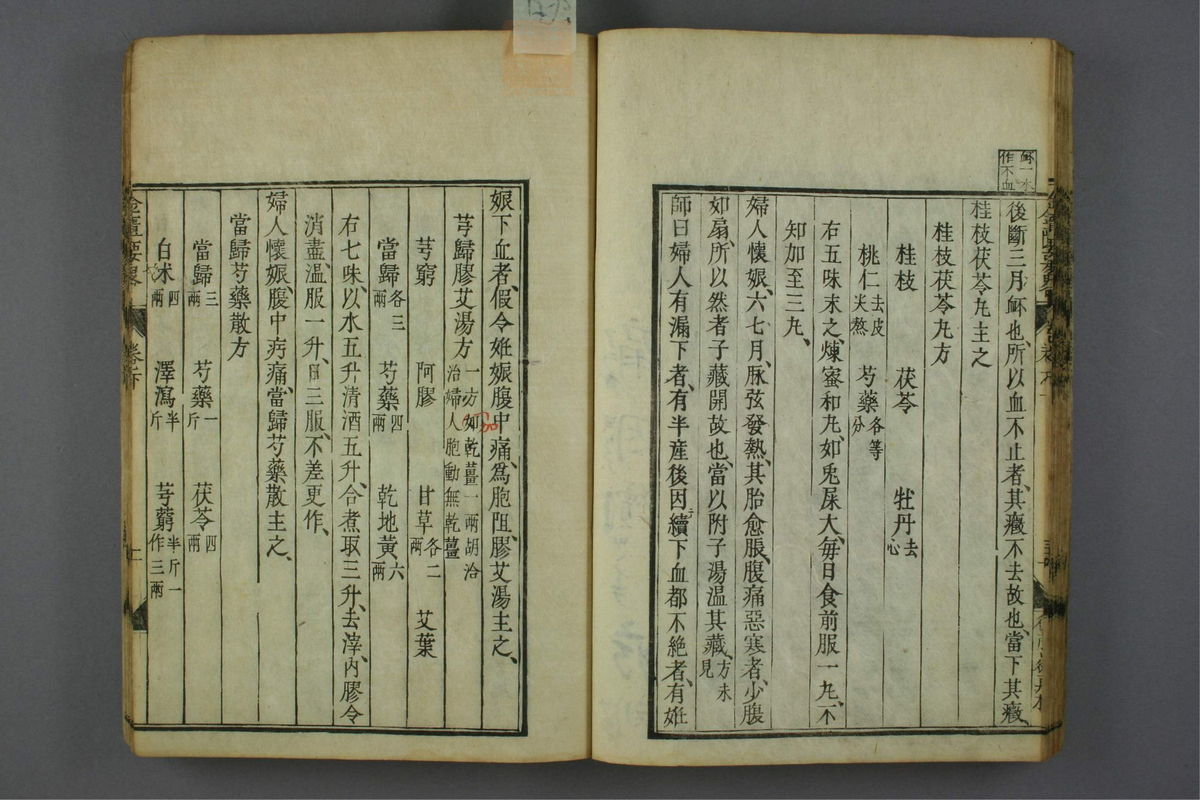 衃一本
作不血
後斷三月衃也、所以血不止者、其癥不去故也、當下其癥、
桂枝茯苓丸主之
桂枝茯苓丸方
桂枝 茯苓 牡丹去心
桃仁去皮尖熬 芍藥各等分
右五味末之、煉蜜和丸、如兎屎大、每日食前服一丸、不
知加至三丸、
婦人懷娠、六七月、脉弦發熱、其胎愈脹、腹痛惡寒者、少腹
如扇、所以然者子藏開故也、當以附子湯温其藏、方未見
師曰婦人有漏下者、有半産後因續下血都不絶者、有姙
娠下血者、假令姙娠腹中痛、爲胞阻、膠艾湯主之、
芎歸膠艾湯方一方加乾薑一兩胡洽治婦人胞動無乾薑
芎窮 阿膠 甘草各二兩 艾葉
當歸各三兩 芍藥四兩 乾地黄六兩
右七味、以水五升清酒五升、合煮取三升、去滓、内膠令
消盡、温服一升、日三服、不差更作、
婦人懷娠腹中㽲痛、當歸芍藥散主之、
當歸芍藥散方
當歸三兩 芍藥一斤 茯苓四兩
白朮四兩 澤瀉半斤 芎藭半斤一作三兩
金匱要畧 卷下